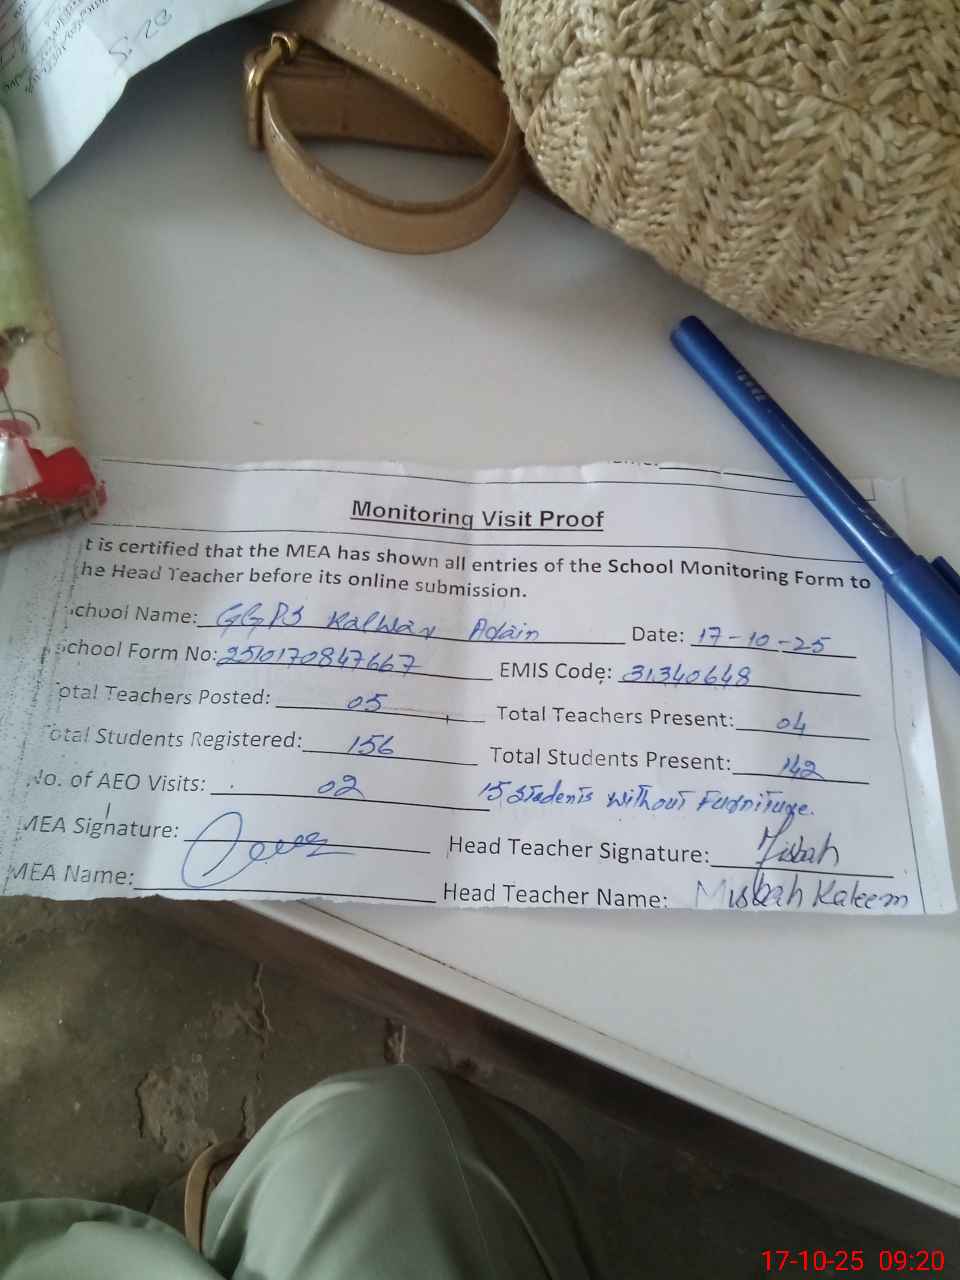 Monitoring Visit Proof
t is certified that the MEA has shown all entries of the School Monitoring Form to
he Head Teacher before its online submission.
chool Name: GGPS Kalwar Adain Date: 17-10-25
chool Form No: 2510170847667 EMIS Code: 31340648
otal Teachers Posted: 05 Total Teachers Present: 04
otal Students Registered: 156 Total Students Present: 142
No. of AEO Visits: 02 15 Students without Furniture.
MEA Signature: Head Teacher Signature: Misbah
MEA Name: Head Teacher Name: Misbah Kaleem
17-10-25 09:20